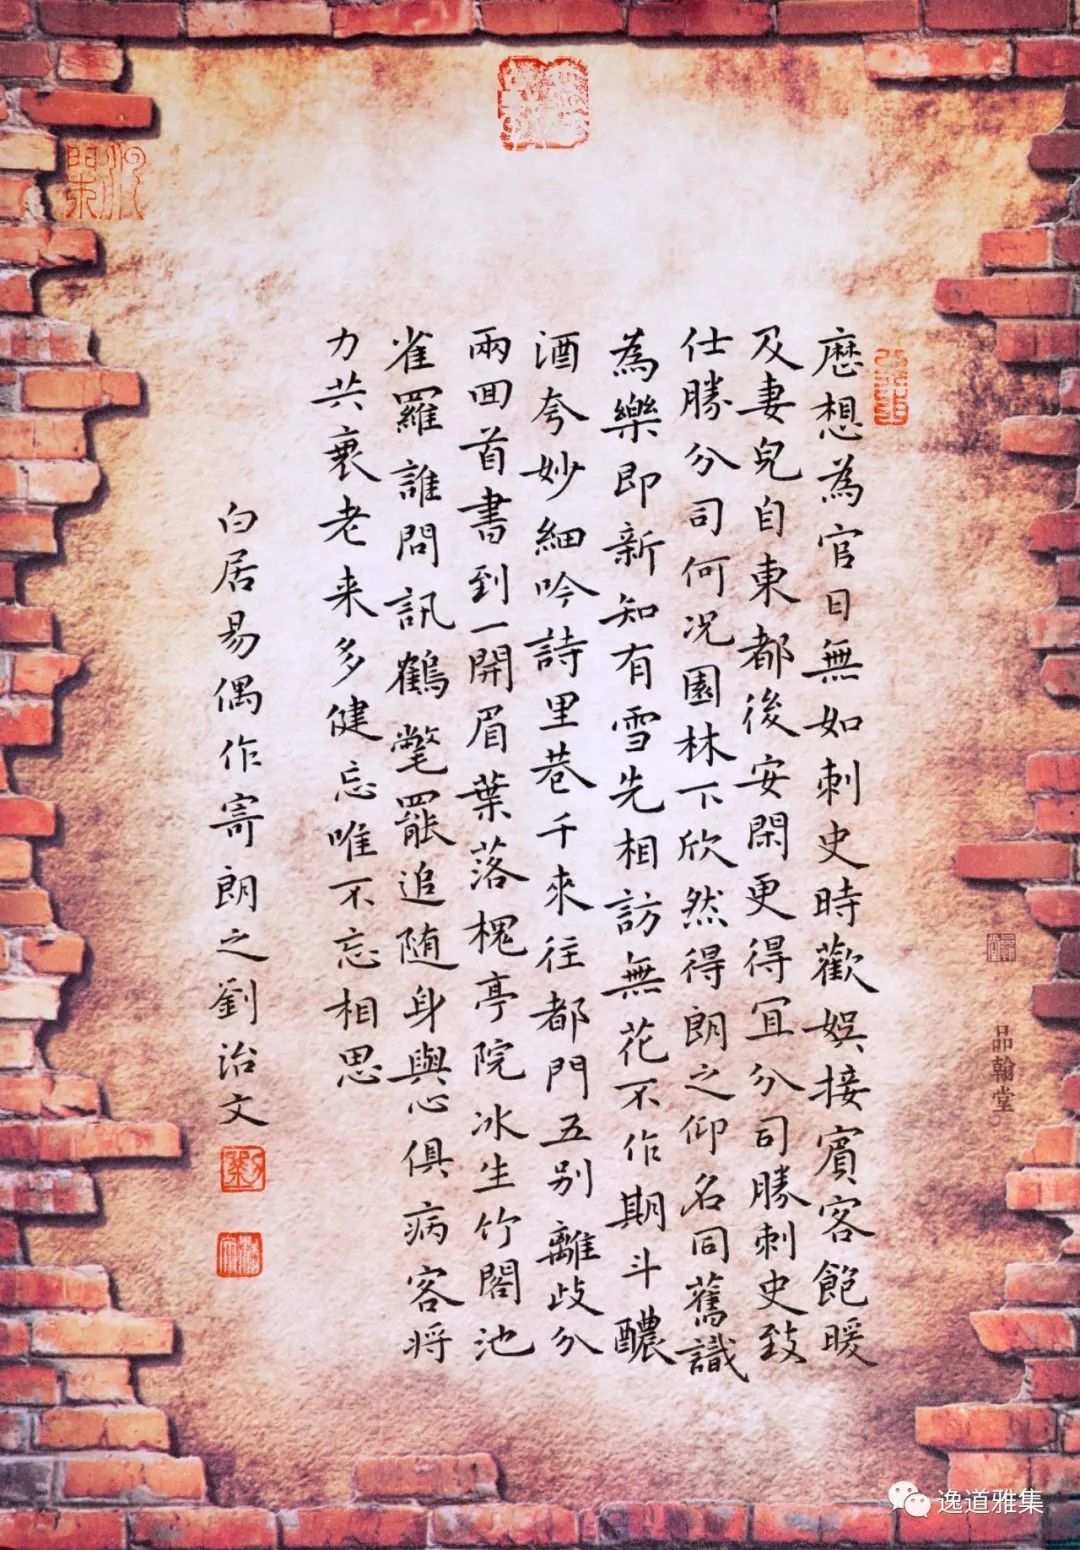 厯想為官日無如刺史時歡娛接賓客飽暖
及妻兒自東都後安閑更得冝分司勝刺史致
仕勝分司何況園林下欣然得朗之仰名同舊識
為樂即新知有雪先相訪無花不作期斗醲
酒夸妙細吟詩里巷千來往都門五别離歧分
兩回首書到一開眉葉落槐亭院冰生竹閣池
雀羅誰問訊鶴氅罷追随身與心俱病容将
力共衰老来多健忘唯不忘相思
白居易偶作寄朗之劉治文
品翰堂
逸道雅集